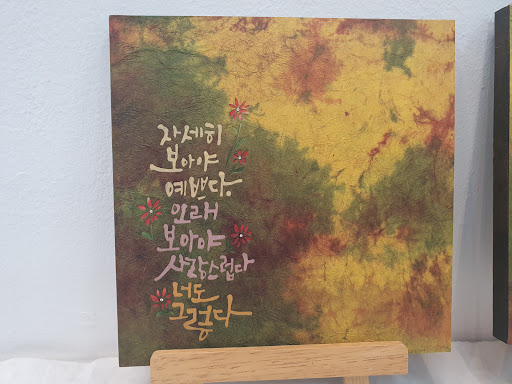 자세히
보아야
예쁘다.
오래
보아야
사랑스럽다
너도
그렇다